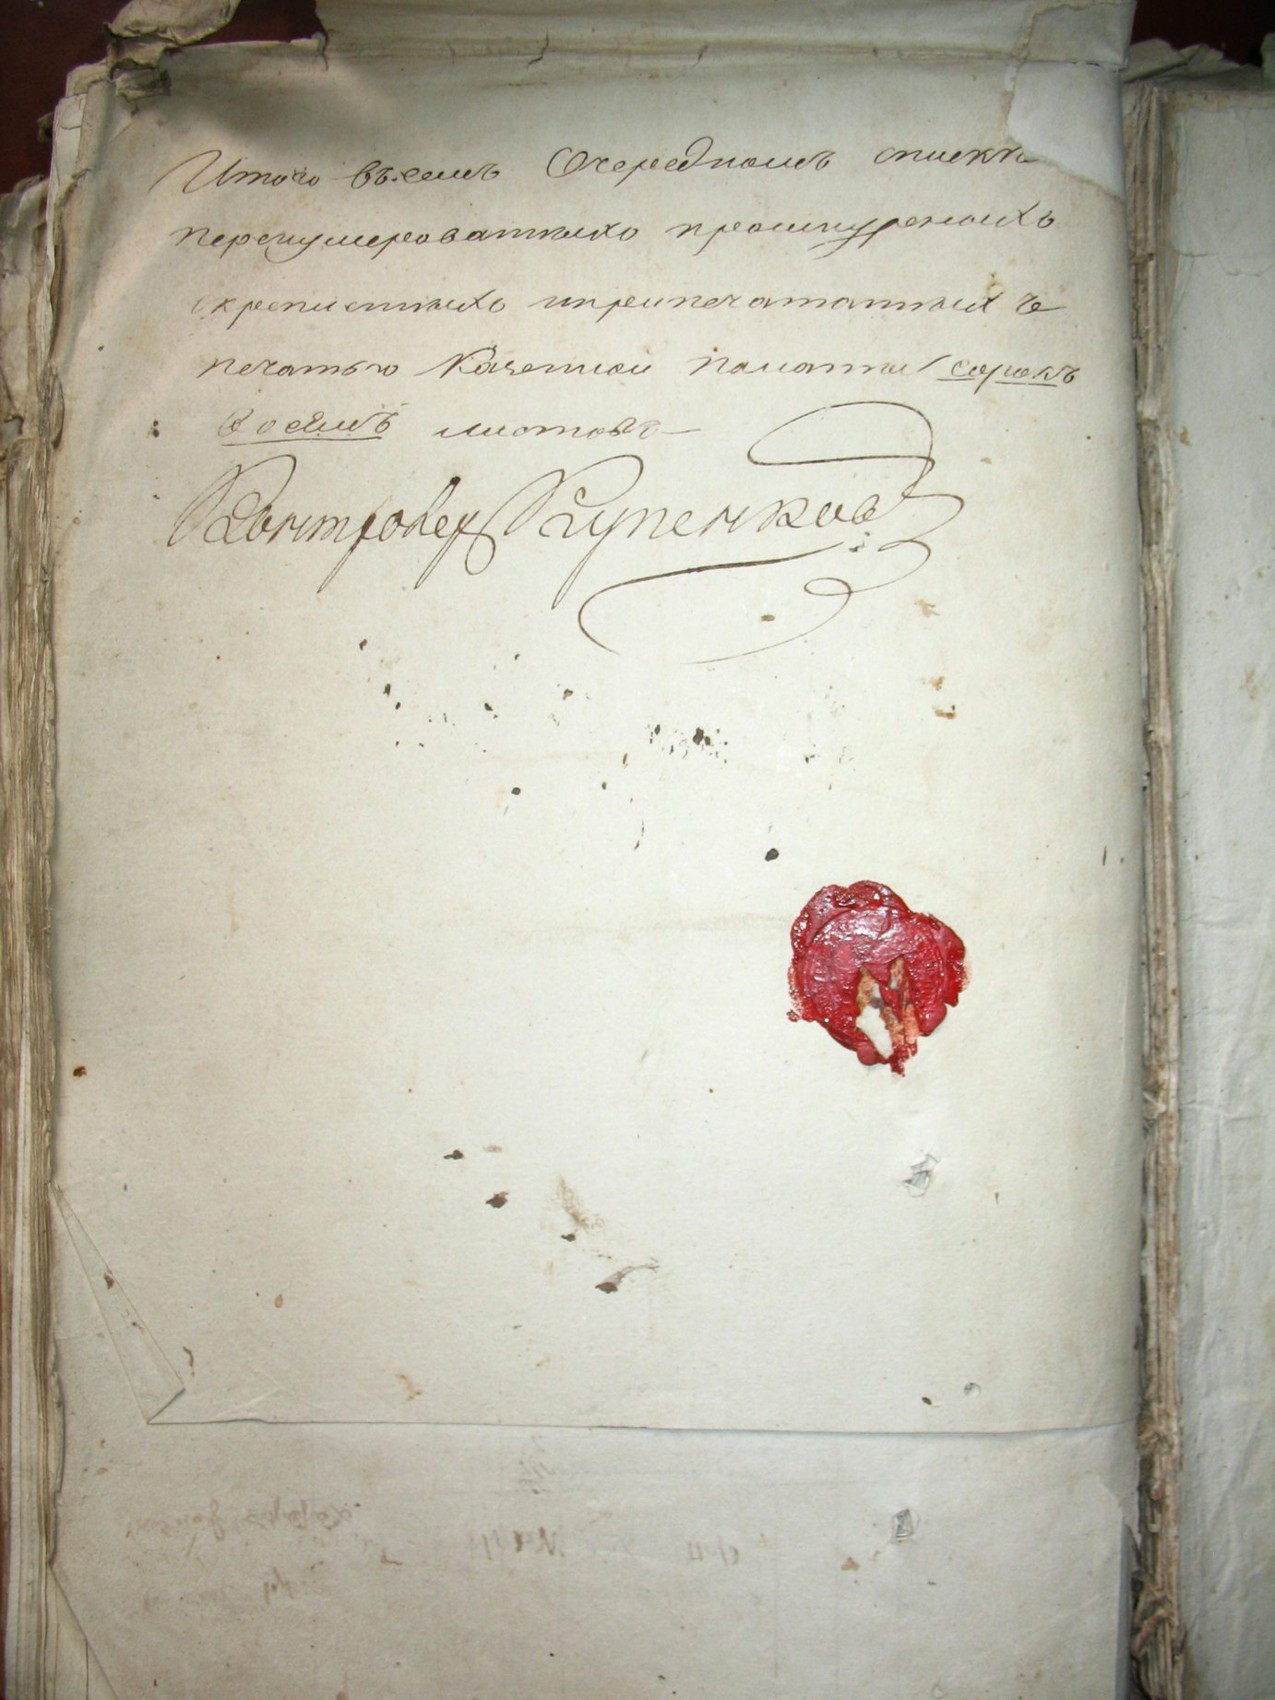 Итого всемъ Очередномъ списке
перенумерованныхъ прошнуреныхъ
скрепленныхъ ипреипечатанныхъ
печатью Казенной Палаты сорокъ
восемъ листовъ
Контролер Купенковъ